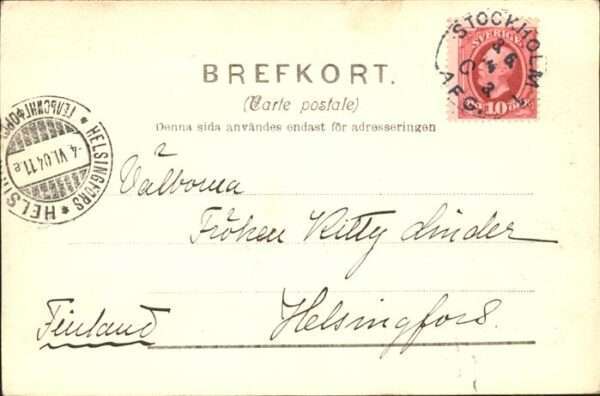 STOCKHOLM
AFG.
SVERIGE
10
BREFKORT.
(Carte postale)
Denna sida användes endast för adresseringen
HELSINGFORS * HELSIN
ГЕЛЬСИНГФОР
4.VI.04.11e
Välborna
Fröken Kitty Linder
Helsingfors.
Finland